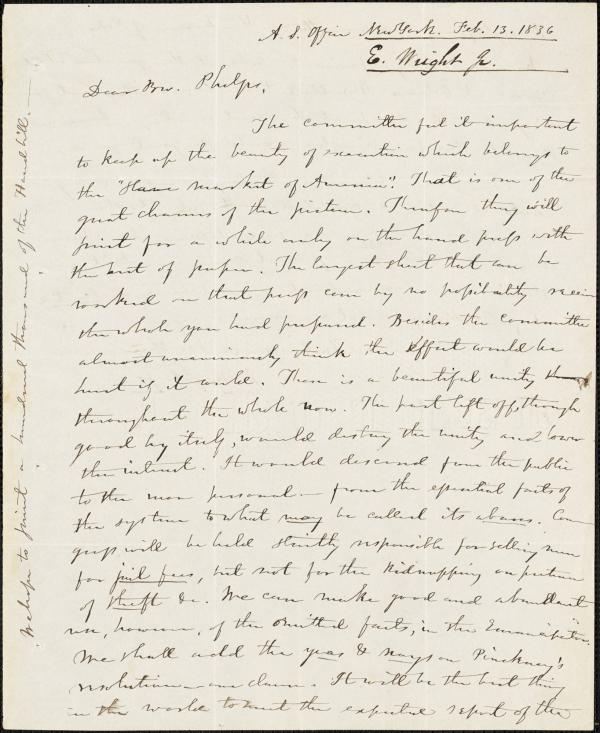 A. S. Office New York. Feb. 13. 1836
E. Wright Jr.
Dear Bro. Phelps,
The committee feel it important
to keep up the beauty of execution which belongs to
the "Slave market of America". That is one of the
great charms of the picture. Therefore they will
print for a while only on the hand press with
the best of paper. The largest sheet that can be
worked on that press can by no possibility receive
the whole you had prepared. Besides the committee
almost unanimously think the effect would be
hurt if it could. There is a beautiful unity
throughout the whole now. The part left off, though
good by itself, would destroy the unity and lower
the interest. It would descend from the public
to the more personal — from the essential facts of
the system to what may be called its abuses. Con-
gress will be held strictly responsible for selling men
for jail fees, but not for the kidnapping on
of theft &c. We can make good and abundant
use, however, of the omitted facts, in the Emancipator.
We shall add the yeas & nays on Pinckney's
resolution — one clause. It will be the best thing
in the world to meet the expected report of the
We hope to print a hundred thousand of the Handbill.—